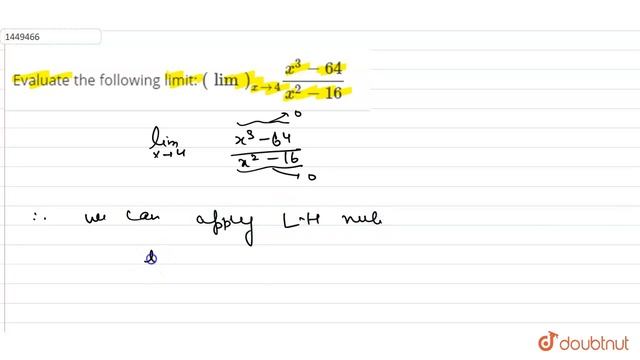 1449466
Evaluate the following limit: ( lim )ₓ→₄ x³ − 64 / x² − 16
→ 0
lim x→4 x³ − 64 / x² − 16
→ 0
∴ we can apply L-H rule
doubtnut